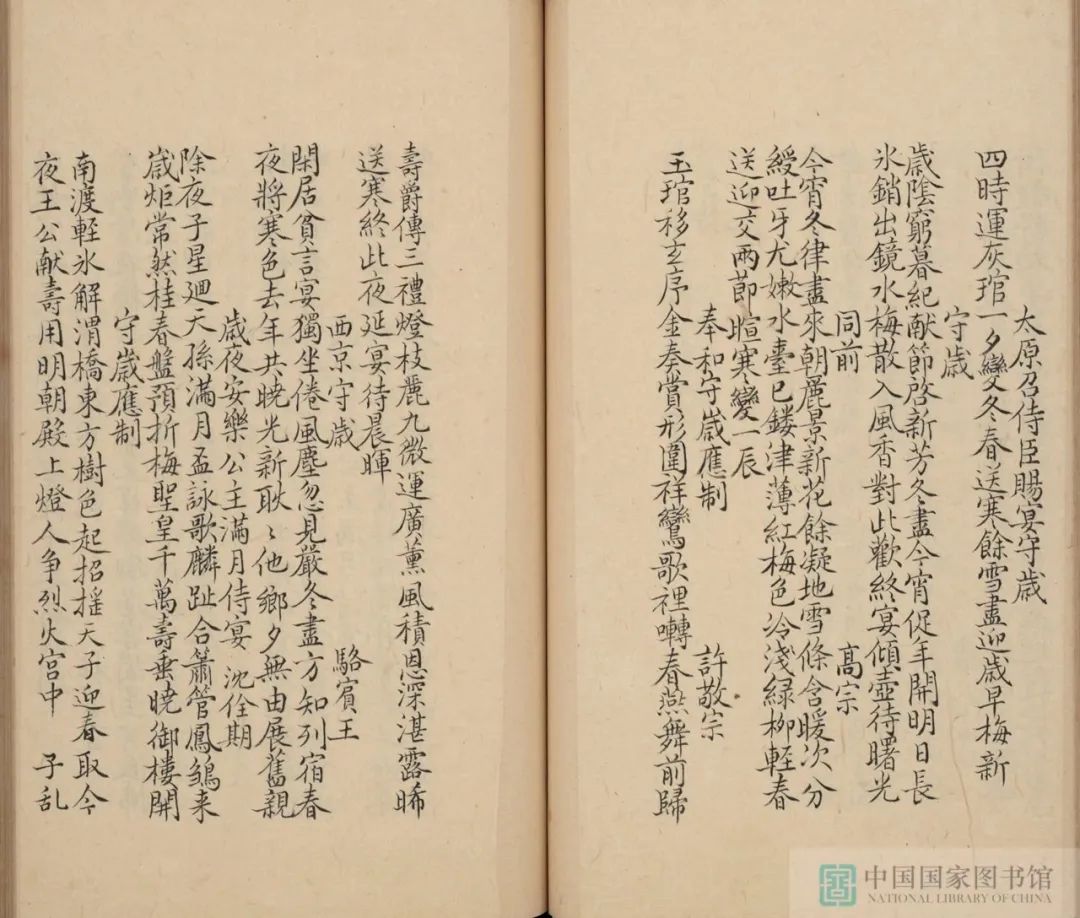 太原召侍臣賜宴守歲
四時運灰琯一夕變冬春送寒餘雪盡迎歲早梅新
守歲
歲陰窮暮紀献節啓新芳冬盡今宵促年開明日長
氷銷出鏡水梅散入風香對此歡終宴傾壺待曙光
同前 高宗
今宵冬律盡來朝麗景新花餘凝地雪條含暖次分
綬吐牙尤嫩水臺已鏤津薄紅梅色冷淺緑柳輕春
送迎交兩節暄寒變一辰
奉和守歲應制 許敬宗
玉琯移玄序金奏賞彤闈祥鸞歌裡囀春燕舞前歸
壽爵傳三禮燈枝麗九微運廣薰風積恩深湛露晞
送寒終此夜延宴待晨暉
西京守歲 駱賓王
閑居貧言宴獨坐倦風塵忽見嚴冬盡方知列宿春
夜將寒色去年共曉光新耿〻他鄉夕無由展舊親
歲夜安樂公主滿月侍宴 沈佺期
除夜子星廻天孫滿月盃詠歌麟趾合簫管鳳鶵来
歲炬常然桂春盤預折梅聖皇千萬壽垂曉御樓開
守歲應制
南渡輕氷解渭橋東方樹色起招摇天子迎春取今
夜王公献壽用明朝殿上燈人争烈火宫中 子乱
中国国家图书馆
NATIONAL LIBRARY OF CHINA